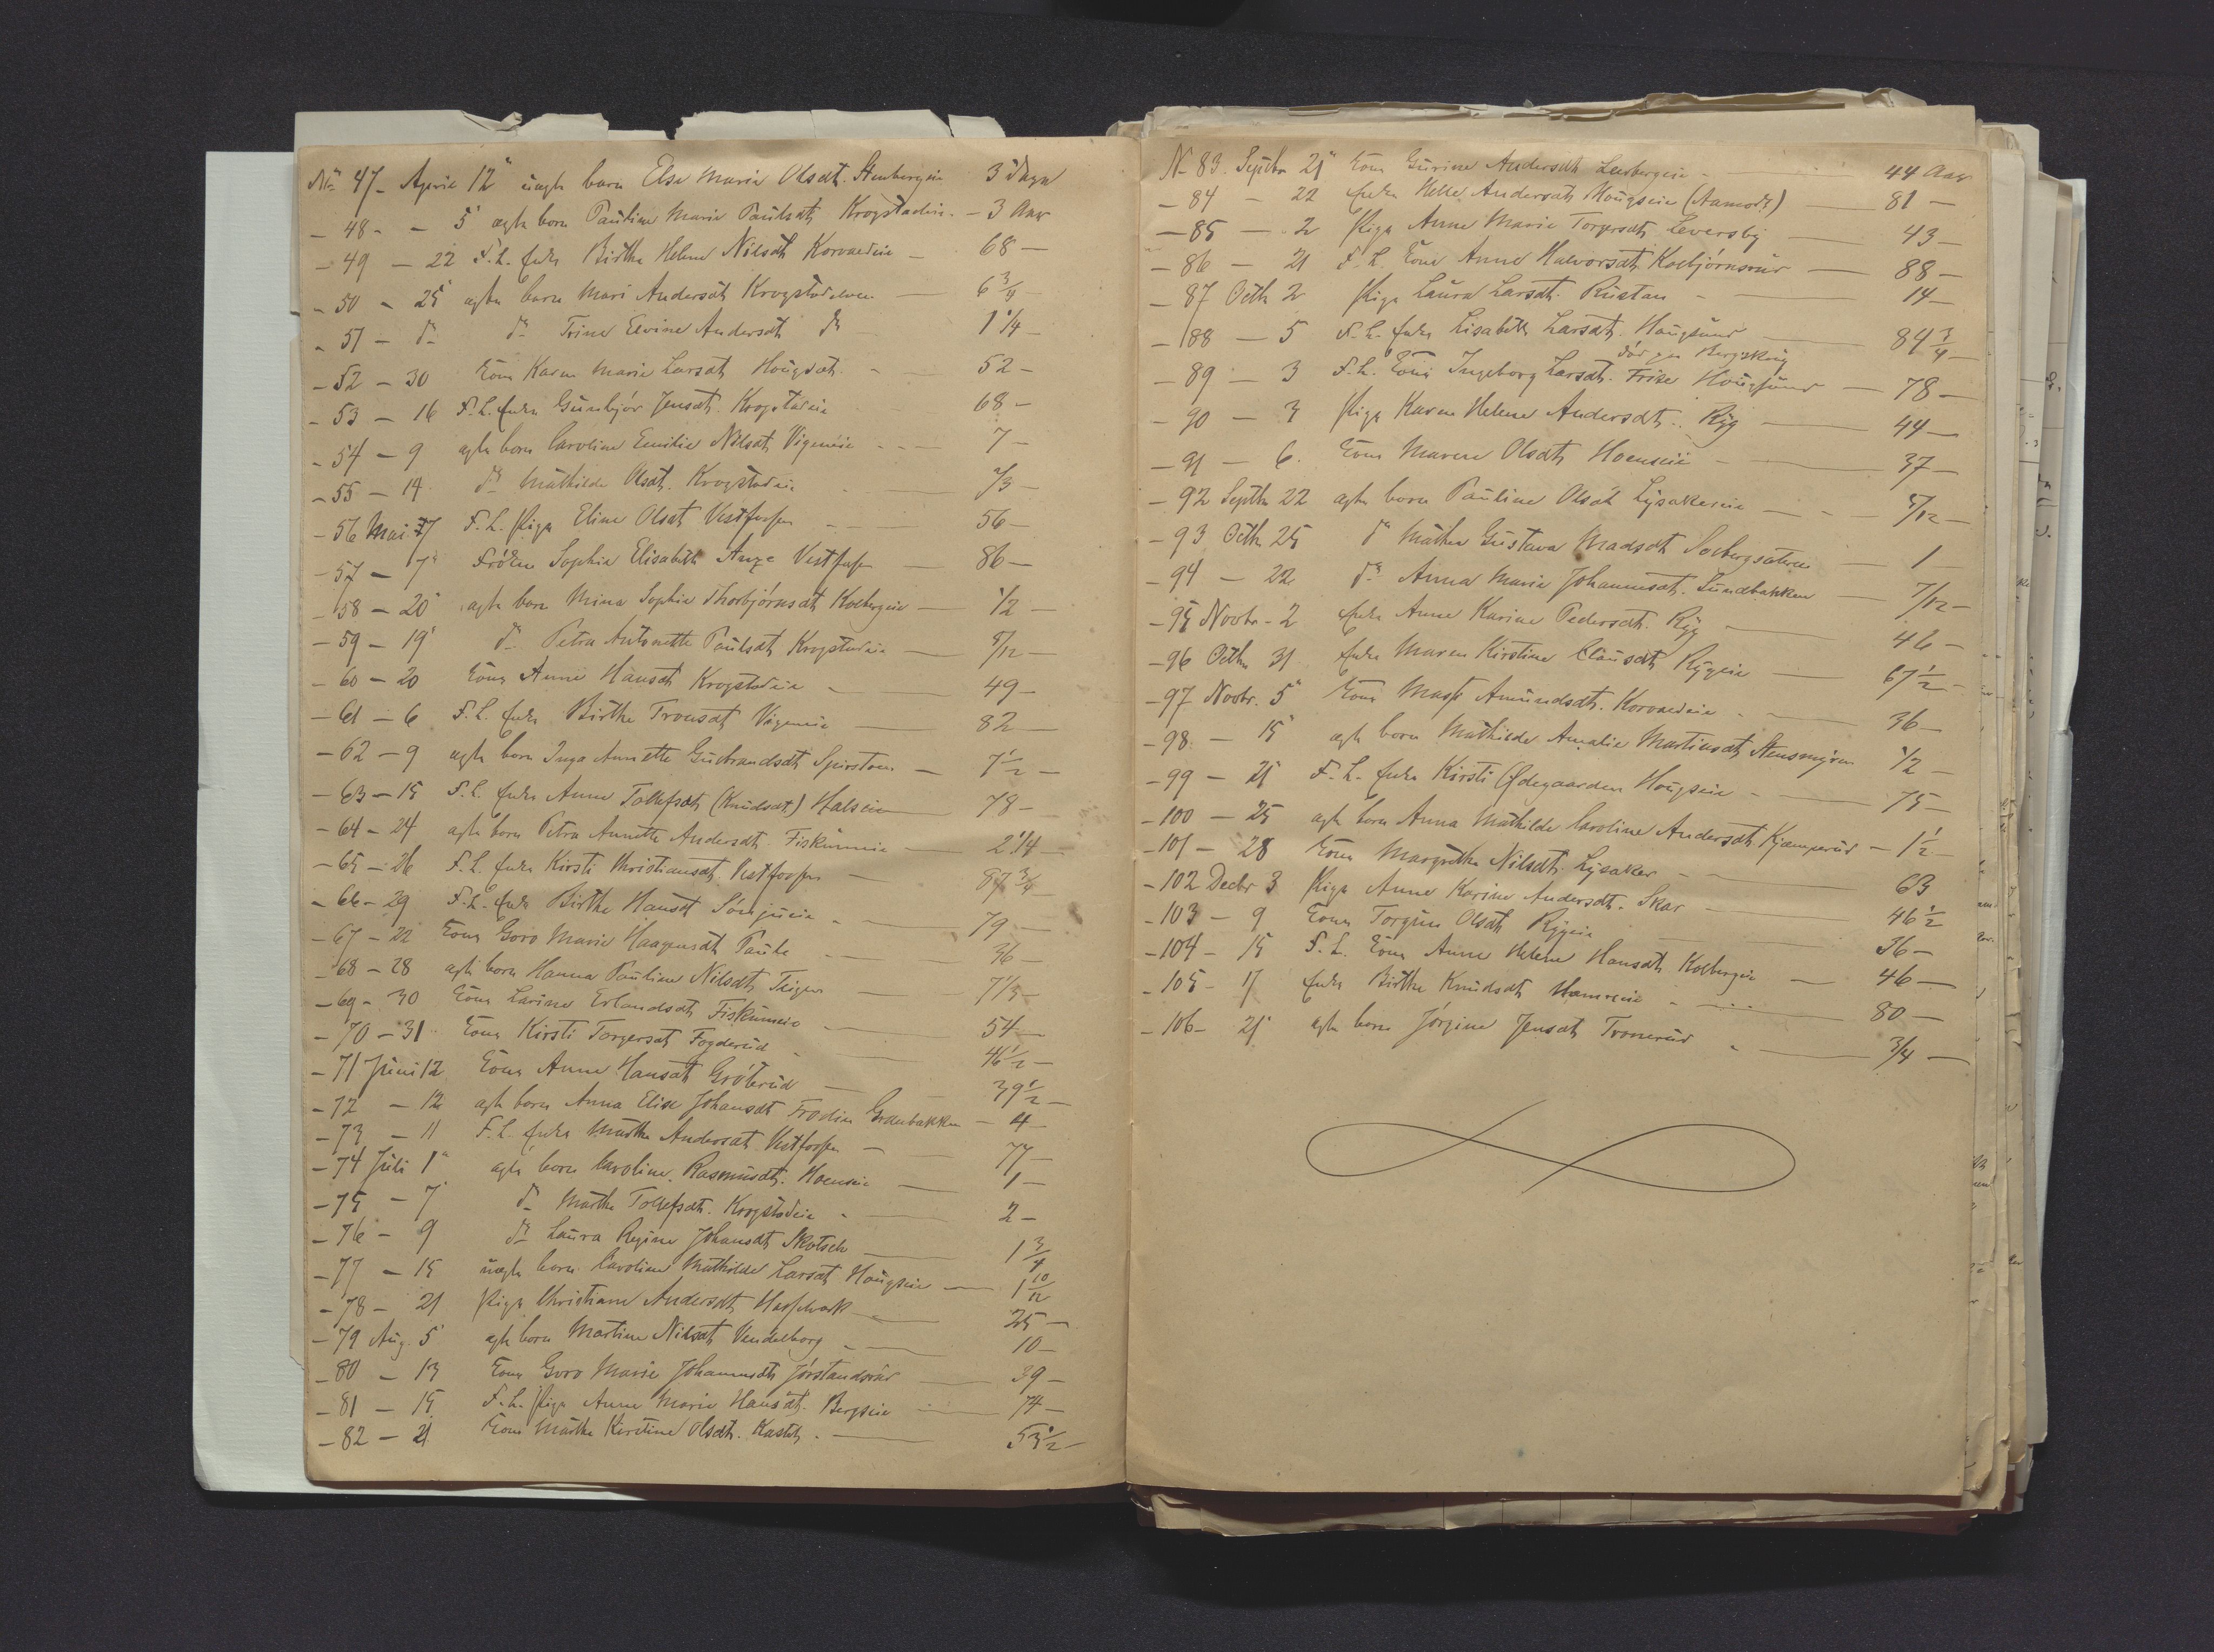 No 47 - April 12 uægte barn Else Maria Olsdt. Stenbergeie 3 Dage
- 48 - - 5 ægte barn Pauline Marie Paulsdt. Krogstadeie - 3 Aar
- 49 - 22 F.L. Enke Birthe Helene Nilsdt Korvaldeie - 68 -
- 50 - 25 ægte barn Mari Andersdt Krogstadelven 6 3/4
- 51 - do do Trine Elvine Andersdt do 1 1/4 -
- 52 - 30 Kone Karen Marie Larsdt Hougsdt. - 52 -
- 53 - 16 F.L. Enke Gunbjør Jensdt. Krogstadeie 68 -
- 54 - 9 ægte barn Caroline Emilie Nilsdt Vigeneie - - 7 -
- 55 - 14 do Mathilde Olsdt. Krogstadeie 2/3 -
- 56 Mai 7 F.L. Pige Eline Olsdt Vestfossen 56 -
- 57 - 7 Frøken Sophie Elisabeth Vestfossen 86 -
- 58 - 20 ægte barn Mina Sophie Thorbjørnsdt Kolbergeie - 1/2 -
- 59 - 19 do Petra Antonette Paulsdt Krogstadeie - 5/12 -
- 60 - 20 Kone Anne Hansdt Krogstadeie - 49 -
- 61 - 6 F.L. Enke Birthe Tronsdt Vigeneie 82 -
- 62 - 9 ægte barn Inga Annette Gulbrandsdt - 7 1/2 -
- 63 - 15 F.L. Enke Anne Tollefsdt (Knudsdt) Halseie 78 -
- 64 - 24 ægte barn Petra Annette Andersdt. Fiskumeie - 2 1/4 -
- 65 - 26 F.L. Enke Kirsti Christiansdt. Vestfossen - 87 3/4
- 66 - 29 F.L. Enke Birthe Hansdt - 79 -
- 67 - 22 Kone Goro Marie Haagensdt - 36 -
- 68 - 28 ægte barn Hanna Pauline Nilsdt Teigen 7 1/3 -
- 69 - 30 Kone Larine Erlandsdt Fiskumeie - 54 -
- 70 - 31 Kone Kirsti Torgersdt Fogderud - 46 1/2 -
- 71 Juni 12 Kone Anne Hansdt Grøterud - 39 1/2 -
- 72 - 12 ægte barn Anna Elise Johansdt - 4 -
- 73 - 11 F.L. Enke Marthe Andersdt Vestfossen - 77 -
- 74 Juli 1 ægte barn Caroline Rasmusdt. Hoenseie 1 -
- 75 - 7 do Marthe Tollefsdt. Krogstadeie - 2 -
- 76 - 9 do Laura Regine Johansdt Skotselv 1 3/4
- 77 - 15 uægte barn Caroline Mathilde Larsdt Hougseie - 1 10/12
- 78 - 21 Pige Christiane Andersdt Hasselværk 25 -
- 79 Aug. 5 ægte barn Martine Nilsdt Vendelborg 10 -
- 80 - 13 Kone Goro Marie Johannesdt Jørstandsrud 39 -
- 81 - 15 F.L. Pige Anne Marie Hansdt. Bergseie 74 -
- 82 - 21 Kone Marthe Kirstine Olsdt. 53 1/2 -
No 83 Septbr 21 Kone Gurine Andersdt Leerbergeie - 44 Aar
- 84 - 22 Enke Helle Andersdt Hougseie (Aamodt) 81 -
- 85 - 2 Pige Anne Marie Torgersdt Leversby 43 -
- 86 - 21 F.L. Kone Anne Halvorsdt Kolbjørnsrud 88 -
- 87 Octb 2 Pige Laura Larsdt. Rustan - 14 -
- 88 - 5 F.L. Enke Lisabeth Larsdt. Hougsund 84 3/4 -
- 89 - 3 F.L. Kone Ingeborg Larsdt. Frise Hougsund - 78 -
- 90 - 3 Pige Karen Helene Andersdt. Ryg 44 -
- 91 - 6. Kone Maren Olsdt Hoenseie - 37 -
- 92 Septbr 22 ægte barn Pauline Olsdt Lysakereie - 5/12 -
- 93 Octbr 25 do Mathea Gustava Madsdt Solbergsæteren 1 -
- 94 - 22 do Anna Marie Johannesdt. Sundbakken 7/12 -
- 95 Novbr - 2 Enke Anne Karine Pedersdt. Ryg 46 -
- 96 Octbr 31 Enke Maren Kirstine Clausdt Rygeie 67 1/2 -
- 97 Novbr. 5 Kone Marte Amundsdt. Korvaldeie - 36 -
- 98 - 15 ægte barn Mathilde Amalie Martinsdt Stensmyren 1/2 -
- 99 - 21 F.L. Enke Kirsti Ødegaarden Hougseie - 75 -
- 100 - 25 ægte barn Anna Mathilde Caroline Andersdt Kjæmperud - 1 1/2 -
- 101 - 28 Kone Margrethe Nilsdt. Lysaker - 63
- 102 Decbr 3 Pige Anne Karine Andersdt. Skar 46 1/2
- 103 - 9 Kone Torgine Olsdt Rygeie 36 -
- 104 - 15 F.L. Kone Anne Helene Hansdt Kolbergeie - 46 -
- 105 - 17 Enke Birthe Knudsdt Hamreeie - 80 -
- 106 - 21 ægte barn Jørgine Jensdt Tronerud - 3/4 -